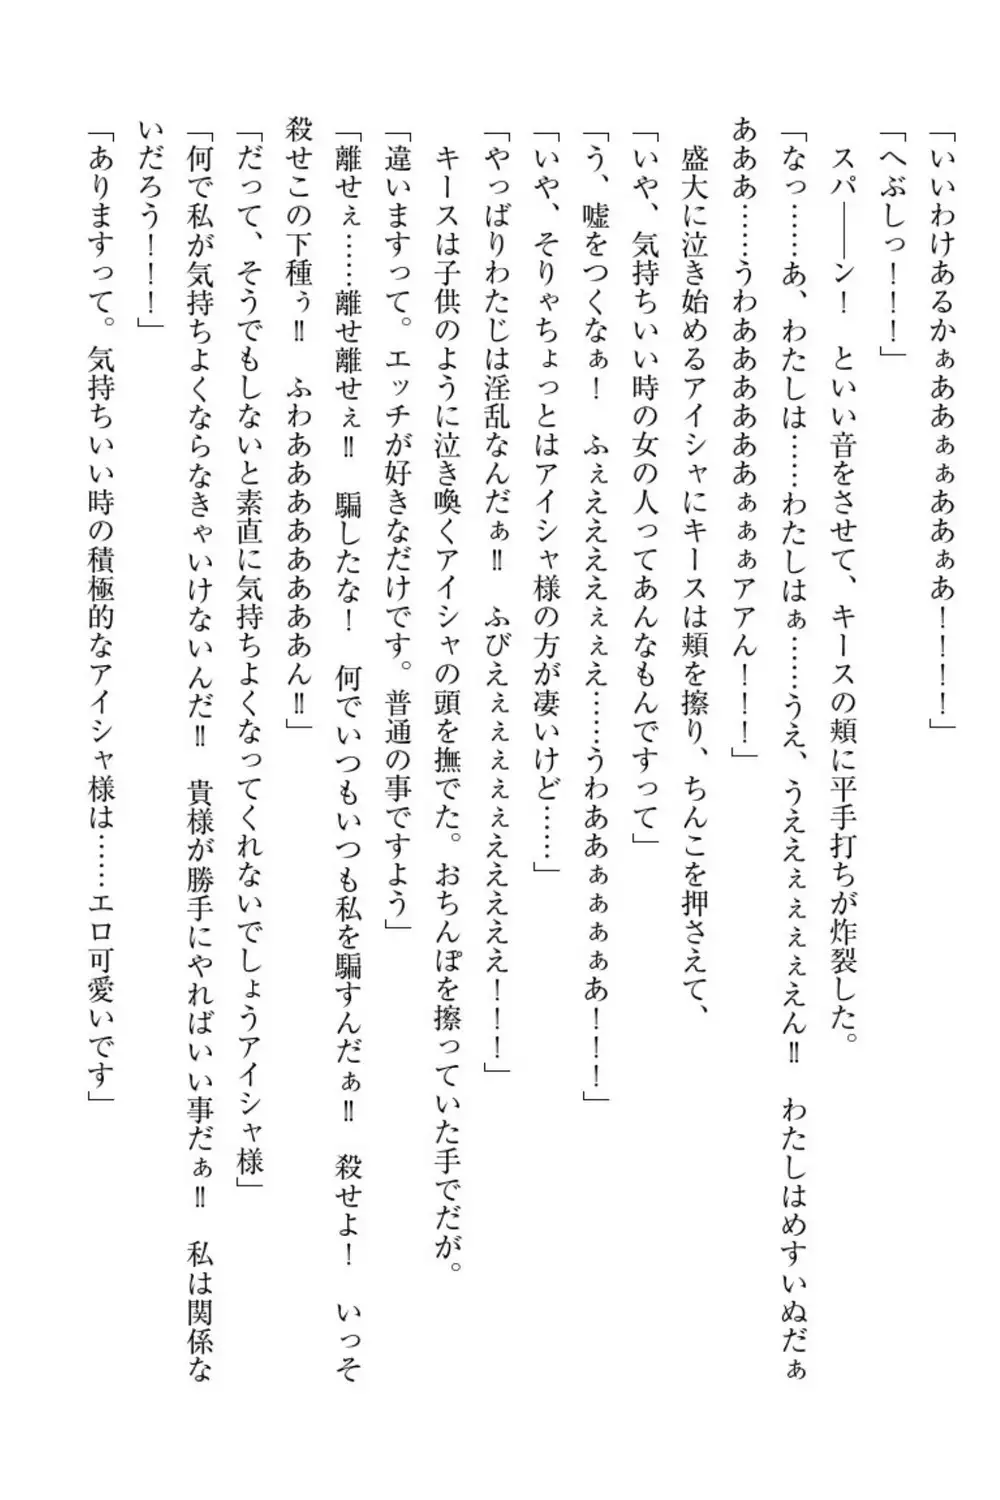 「いいわけあるかぁああぁぁああぁあ！！！！」
「へぶしっ！！！」
　スパ――ン！　といい音をさせて、キースの頬に平手打ちが炸裂した。
「なっ……あ、わたしは……わたしはぁ……うえ、うええぇぇぇえん‼　わたしはめすいぬだぁ
あああ……うわあああああああぁぁぁアアん！！！」
　盛大に泣き始めるアイシャにキースは頬を擦り、ちんこを押さえて、
「いや、気持ちいい時の女の人ってあんなもんですって」
「う、嘘をつくなぁ！　ふぇえええぇぇえ……うわああぁぁぁぁあ！！！」
「いや、そりゃちょっとはアイシャ様の方が凄いけど……」
「やっばりわたじは淫乱なんだぁ‼　ふびえぇぇぇぇえええええ！！！」
　キースは子供のように泣き喚くアイシャの頭を撫でた。おちんぽを擦っていた手でだが。
「違いますって。エッチが好きなだけです。普通の事ですよう」
「離せぇ……離せ離せぇ‼　騙したな！　何でいつもいつも私を騙すんだぁ‼　殺せよ！　いっそ
殺せこの下種ぅ‼　ふわあああああああああん‼」
「だって、そうでもしないと素直に気持ちよくなってくれないでしょうアイシャ様」
「何で私が気持ちよくならなきゃいけないんだ‼　貴様が勝手にやればいい事だぁ‼　私は関係な
いだろう！！！」
「ありますって。気持ちいい時の積極的なアイシャ様は……エロ可愛いです」